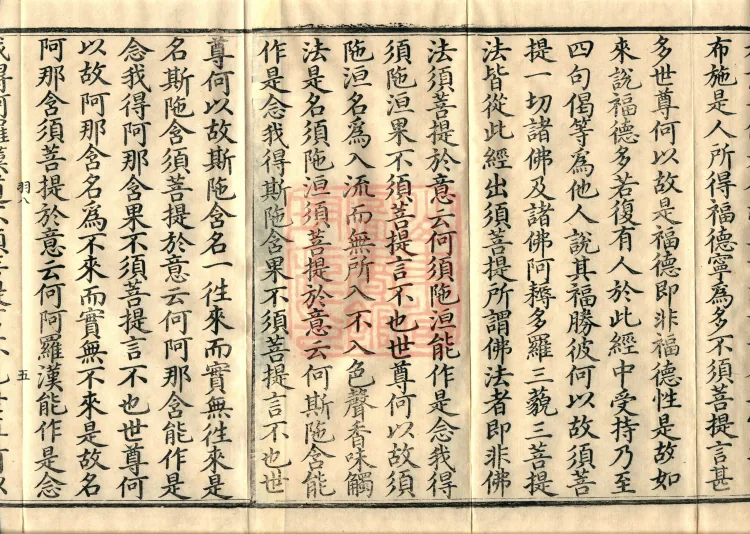 布施是人所得福德寧為多不須菩提言甚
多世尊何以故是福德即非福德性是故如
來說福德多若復有人於此經中受持乃至
四句偈等為他人說其福勝彼何以故須菩
提一切諸佛及諸佛阿耨多羅三藐三菩提
法皆從此經出須菩提所謂佛法者即非佛
法須菩提於意云何須陁洹能作是念我得
須陁洹果不須菩提言不也世尊何以故須
陁洹名為入流而無所入不入色聲香味觸
法是名須陁洹須菩提於意云何斯陁含能
作是念我得斯陁含果不須菩提言不也世
尊何以故斯陁含名一往來而實無往來是
名斯陁含須菩提於意云何阿那含能作是
念我得阿那含果不須菩提言不也世尊何
以故阿那含名為不來而實無不來是故名
阿那含須菩提於意云何阿羅漢能作是念
羽八
五